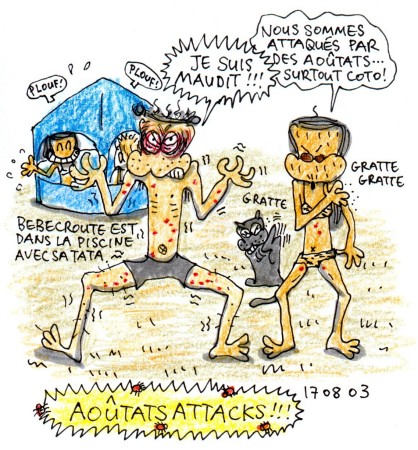 NOUS SOMMES
ATTAQUÉS PAR
DES AOÛTATS...
SURTOUT COTO!
JE SUIS
MAUDIT!!!
PLOUF!
PLOUF!
GRATTE
GRATTE
GRATTE
BEBECROUTE EST
DANS LA PISCINE
AVEC SA TATA
17 08 03
AOÛTATS ATTACKS!!!